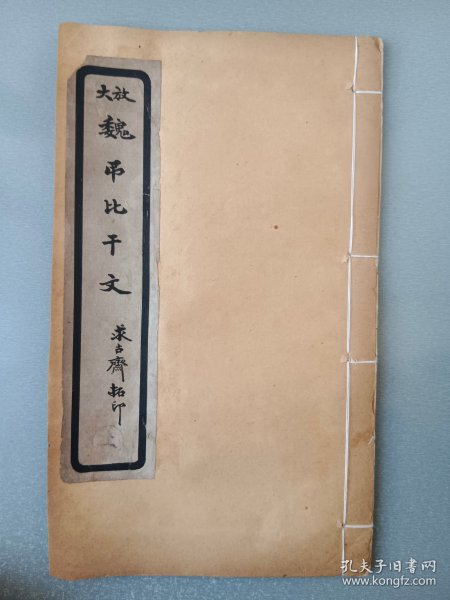 放大
魏弔比干文
求古齋拓印
孔夫子旧书网
www.kongfz.com